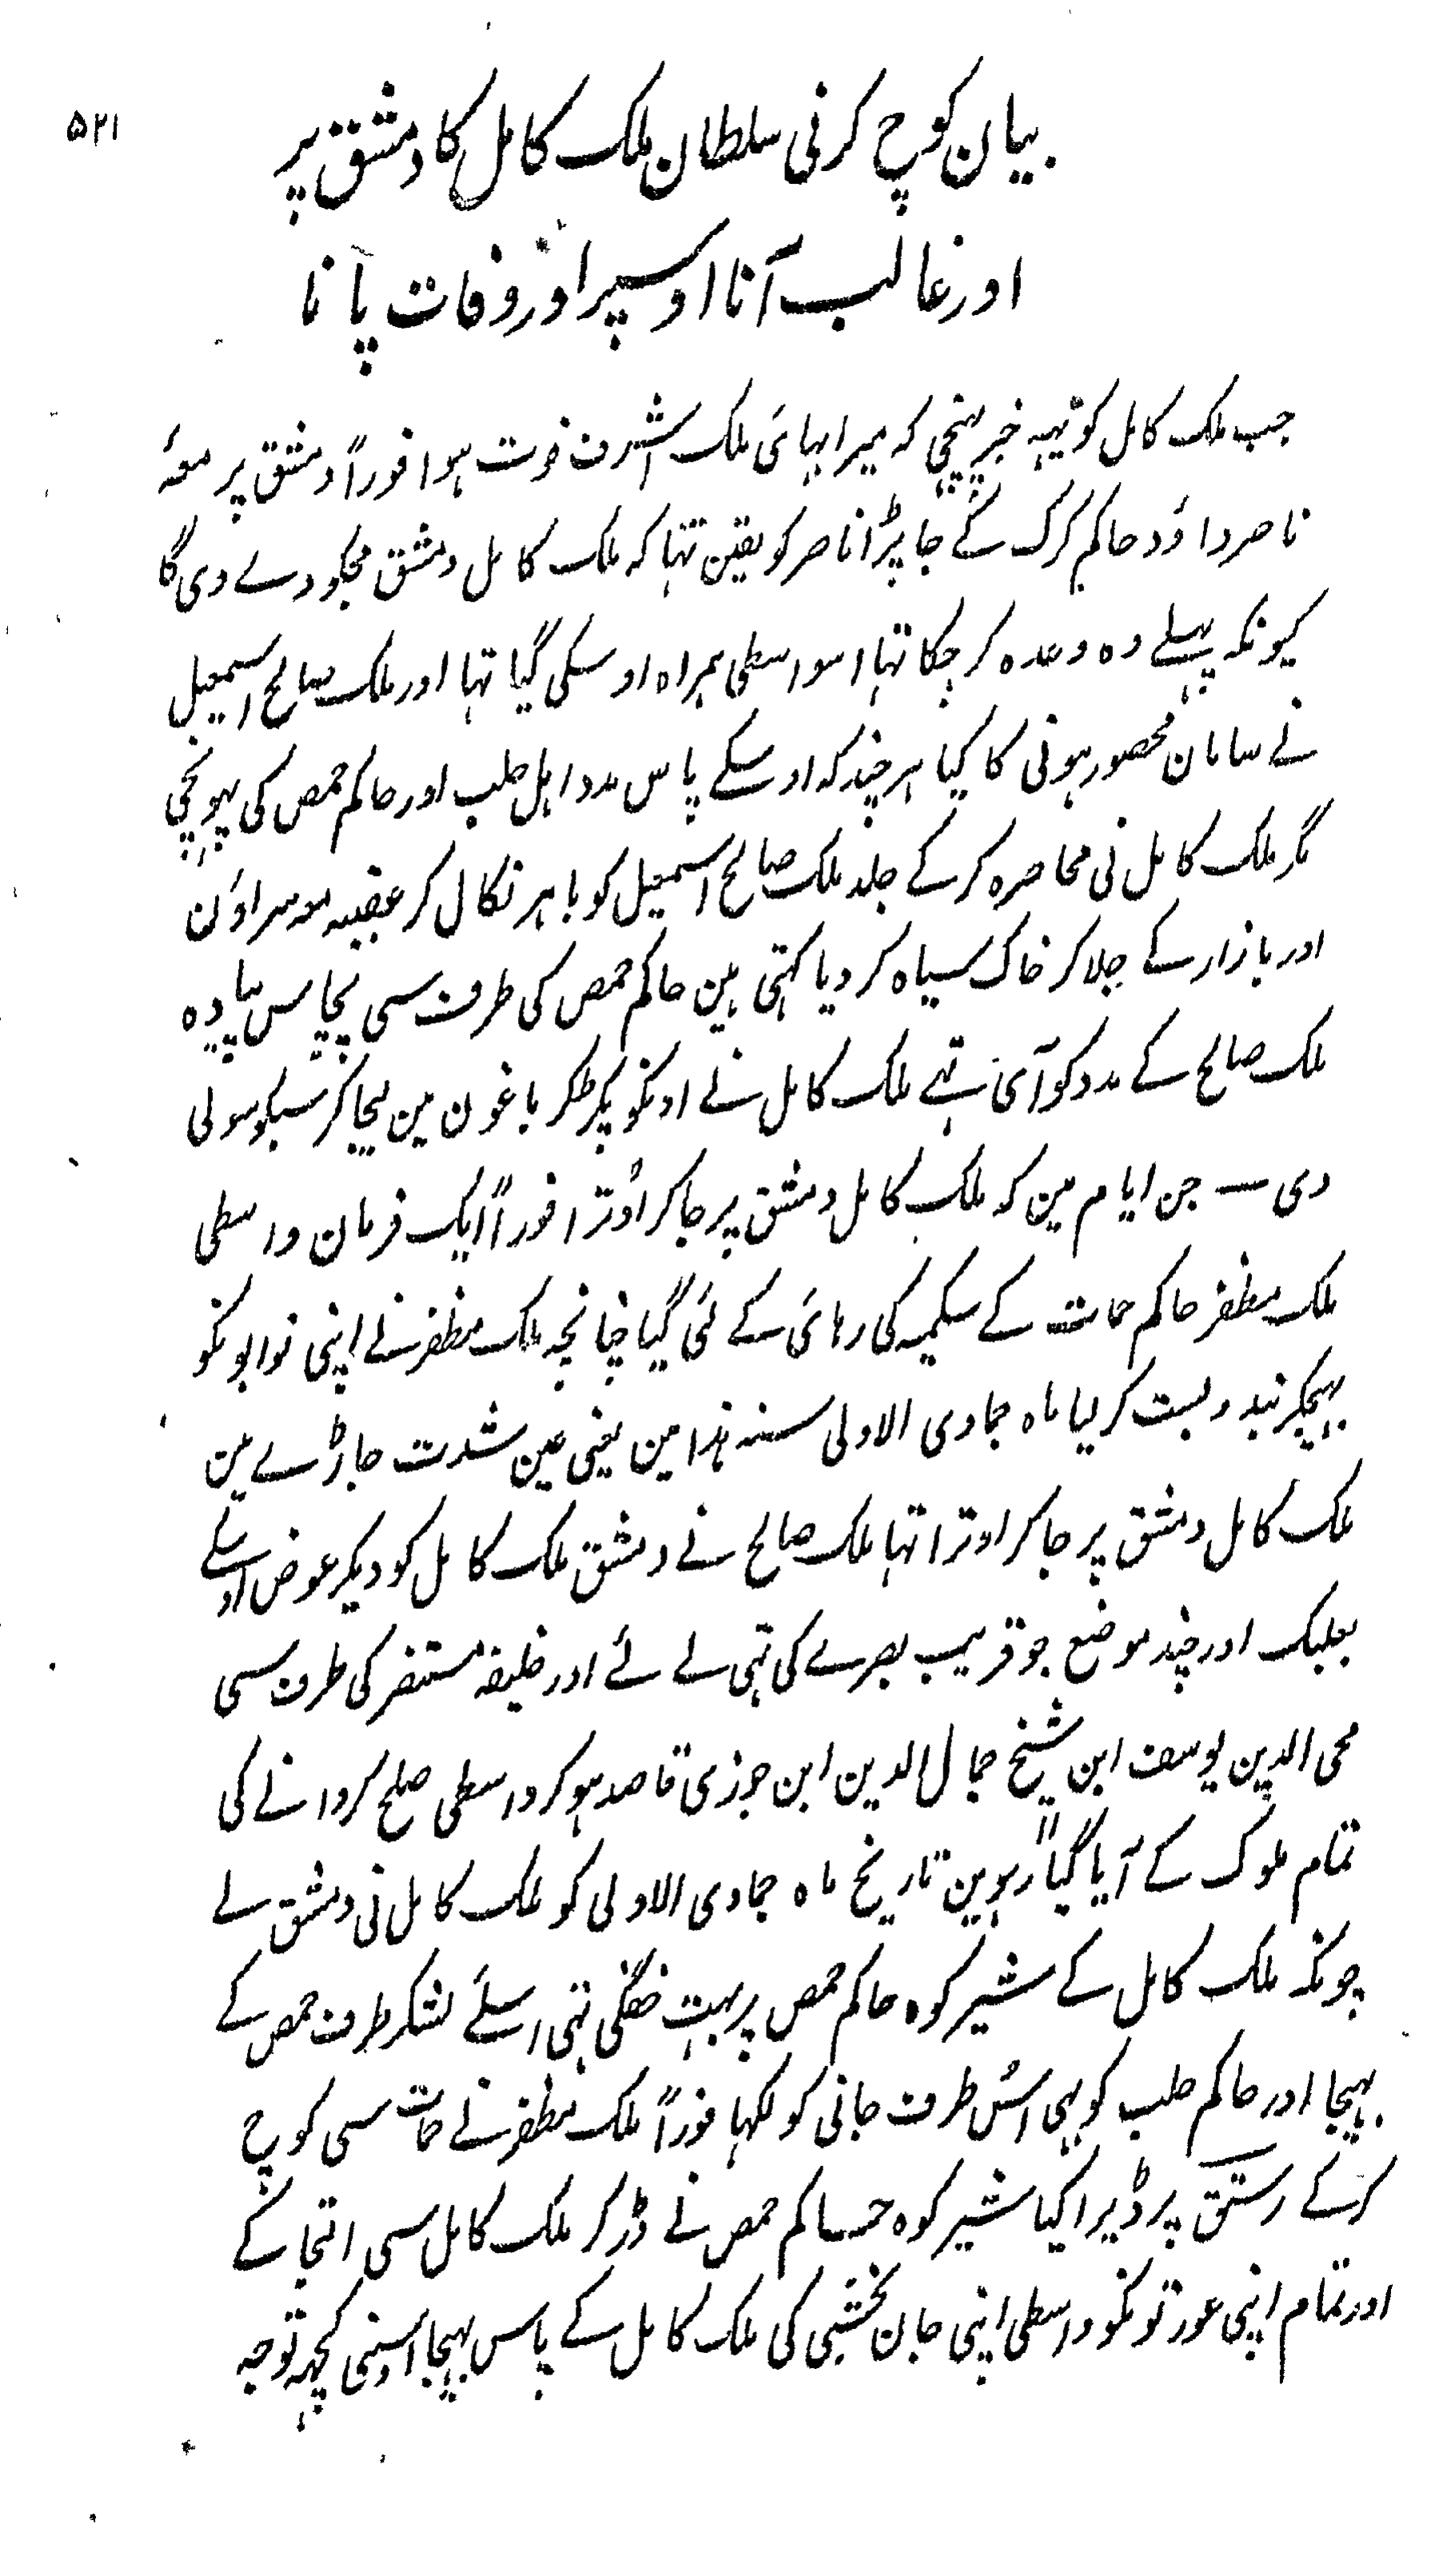 ۵۲۱
بیان کوچ کرنی سلطان ملک کامل کا دمشق پر
اور غالب آنا اوسپر اور وفات پانا
جب ملک کامل کو یہہ خبر پہنچی کہ میرا بہائی ملک اشرف فوت ہوا فوراً دمشق پر معہٴ
ناصر داؤد حاکم کرک کے جا پڑا ناصر کو یقین تہا کہ ملک کامل دمشق مجکو دے دی گا
کیونکہ پہلے وہ وعدہ کر چکا تہا اسواسطی ہمراہ اوسکی گیا تہا اور ملک صالح اسمعیل
نے سامان محصور ہونی کا کیا ہر چند کہ اوسکے پاس مدد اہل حلب اور حاکم حمص کی پہونچی
مگر ملک کامل نی محاصرہ کر کے جلد ملک صالح اسمعیل کو باہر نکال کر عقیبہ معہ سراؤن
اور بازار کے جلا کر خاک سیاہ کر دیا کہتی ہین حاکم حمص کی طرف سی پچاس پیادہ
ملک صالح کے مدد کو آئ تہے ملک کامل نے اونکو پکڑکر باغون مین لیجا کر سبکو سولی
دی — جن ایام مین کہ ملک کامل دمشق پر جا کر اوُترا فوراً ایک فرمان واسطی
ملک مظفر حاکم حمات کے سلمیہ کی رہائی کے لئی گیا چنانچہ ملک مظفر نے اپنی نوابونکو
بہیجکر بندوبست کر لیا ماہ جمادی الاولی سنہ ہذا مین یعنی عین شدت جاڑے مین
ملک کامل دمشق پر جا کر اوترا تہا ملک صالح نے دمشق ملک کامل کو دیکر عوض اوسکے
بعلبک اور چند موضع جو قریب بصرے کی تہی لے لئے اور خلیفہ مستنصر کی طرف سی
محی الدین یوسف ابن شیخ جمال الدین ابن جوزی قاصد ہو کر واسطی صلح کروانے کی
تمام ملوک کے آیا گیارہوین تاریخ ماہ جمادی الاولی کو ملک کامل نی دمشق لے
چونکہ ملک کامل کے شیرکوہ حاکم حمص پر بہت خفگی تہی اسلئے لشکر طرف حمص کے
بہیجا اور حاکم حلب کو بہی اسُ طرف جانی کو لکہا فوراً ملک مظفر نے حمات سی کوچ
کر کے رستن پر ڈیرا کیا شیرکوہ حاکم حمص نے ڈر کر ملک کامل سی التجا کے
اور تمام اپنی عورتونکو واسطی اپنی جان بخشی کی ملک کامل کے پاس بہیجا اوسنی کچہہ توجہ